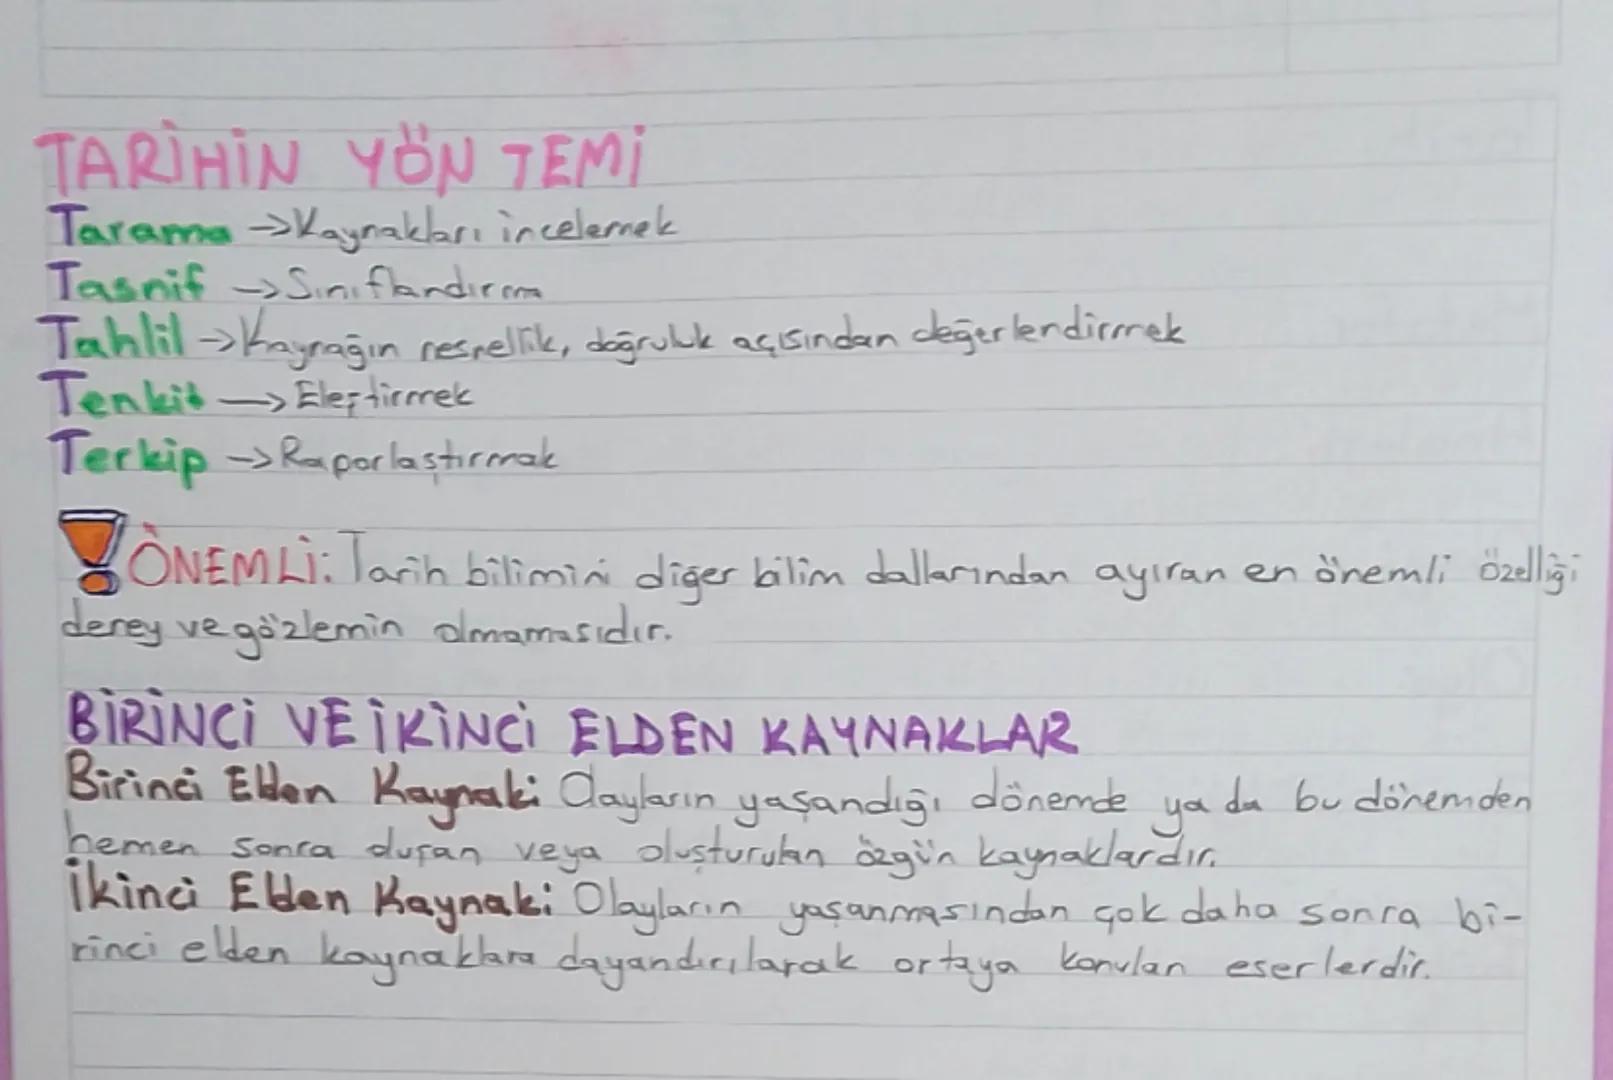 TARİHİN YÖNTEMİ
Tarama → Kaynakları incelemek
Tasnif → Sınıflandırma
Tahlil → Kaynağın resnellik, doğruluk açısından değerlendirmek
Tenkit → Eleştirmek
Terkip → Raporlaştırmak
ÖNEMLİ: Tarih bilimini diğer bilim dallarından ayıran en önemli özelliği
deney ve gözlemin olmamasıdır.
BİRİNCİ VE İKİNCİ ELDEN KAYNAKLAR
Birinci Elden Kaynak: Olayların yaşandığı dönemde ya da bu dönemden
hemen sonra duşan veya oluşturulan özgün kaynaklardır.
İkinci Elden Kaynak: Olayların yaşanmasından çok daha sonra bi-
rinci elden kaynaklara dayandırılarak ortaya konulan eserlerdir.